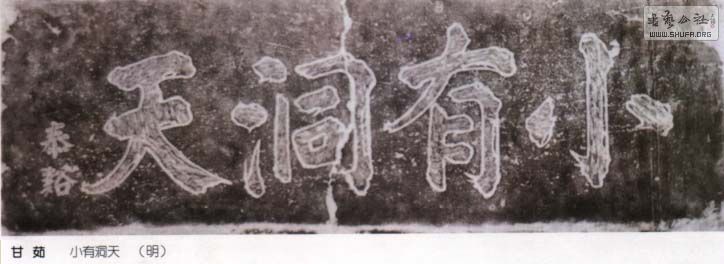 小有洞天
泰谿
甘茹 小有洞天 （明）
书艺公社
WWW.SHUFA.ORG